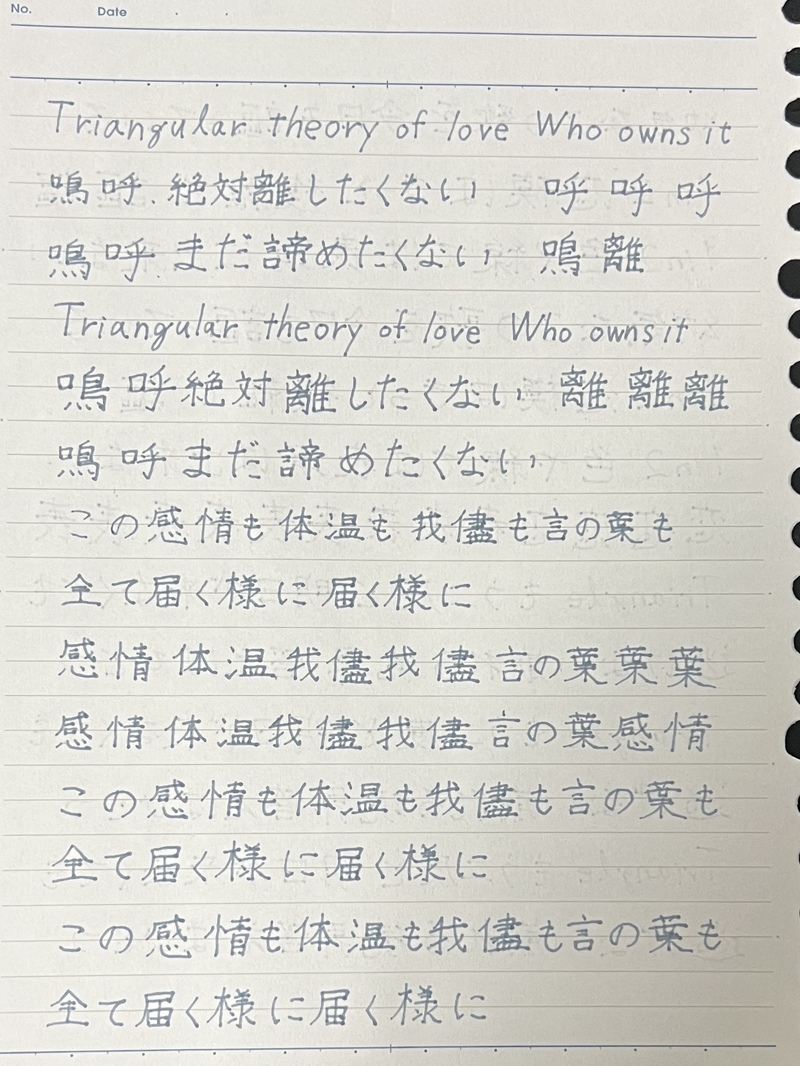 No. Date
Triangular theory of love Who owns it
嗚呼 絶対離したくない 呼呼呼
嗚呼 まだ諦めたくない 嗚離
Triangular theory of love Who owns it
嗚呼絶対離したくない 離離離
嗚呼まだ諦めたくない
この感情も体温も我儘も言の葉も
全て届く様に届く様に
感情体温我儘我儘言の葉葉葉
感情体温我儘我儘言の葉感情
この感情も体温も我儘も言の葉も
全て届く様に届く様に
この感情も体温も我儘も言の葉も
全て届く様に届く様に